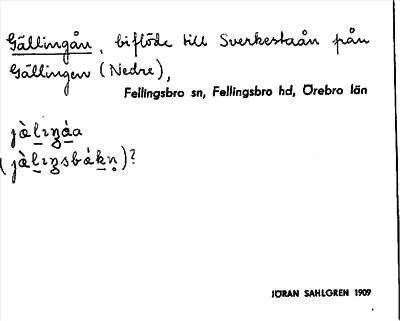 Gällingån, biflöde till Sverkestaån från
Gällingen (Nedre),
Fellingsbro sn, Fellingsbro hd, Örebro län
jàliŋáa
(jàliŋsbákn̥)?
JÖRAN SAHLGREN 1909